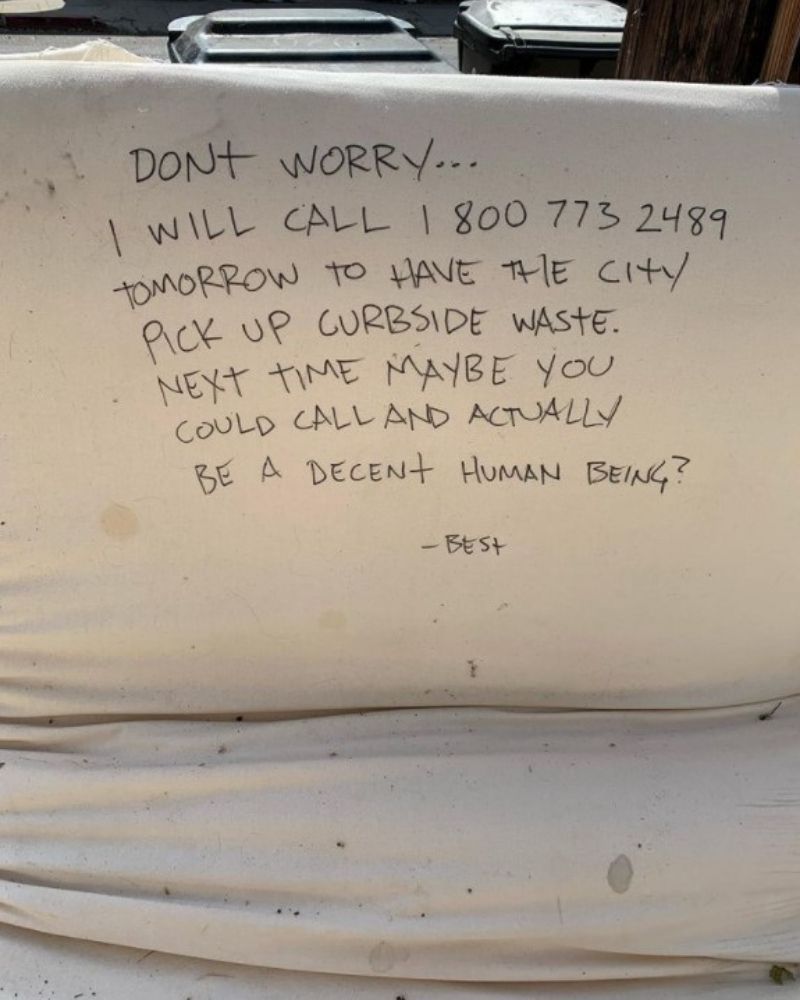 DONT WORRY...
I WILL CALL 1 800 773 2489
TOMORROW TO HAVE THE CITY
PICK UP CURBSIDE WASTE.
NEXT TIME MAYBE YOU
COULD CALL AND ACTUALLY
BE A DECENT HUMAN BEING?
- BEST